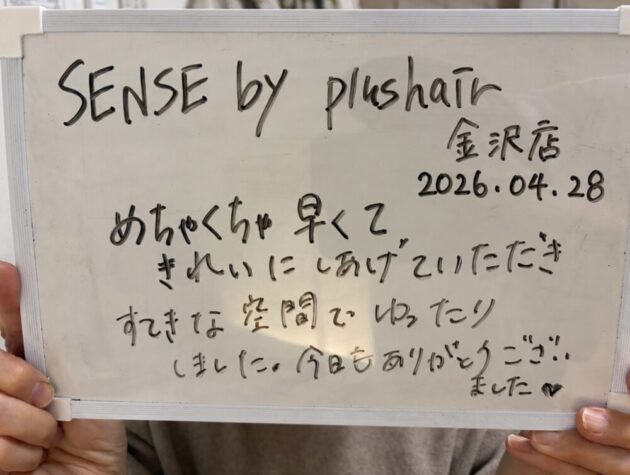 SENSE by plushair
金沢店
2026.04.28
めちゃくちゃ早くて
きれいにしあげていただき
すてきな空間でゆったり
しました。今日もありがとうござい
ました♥